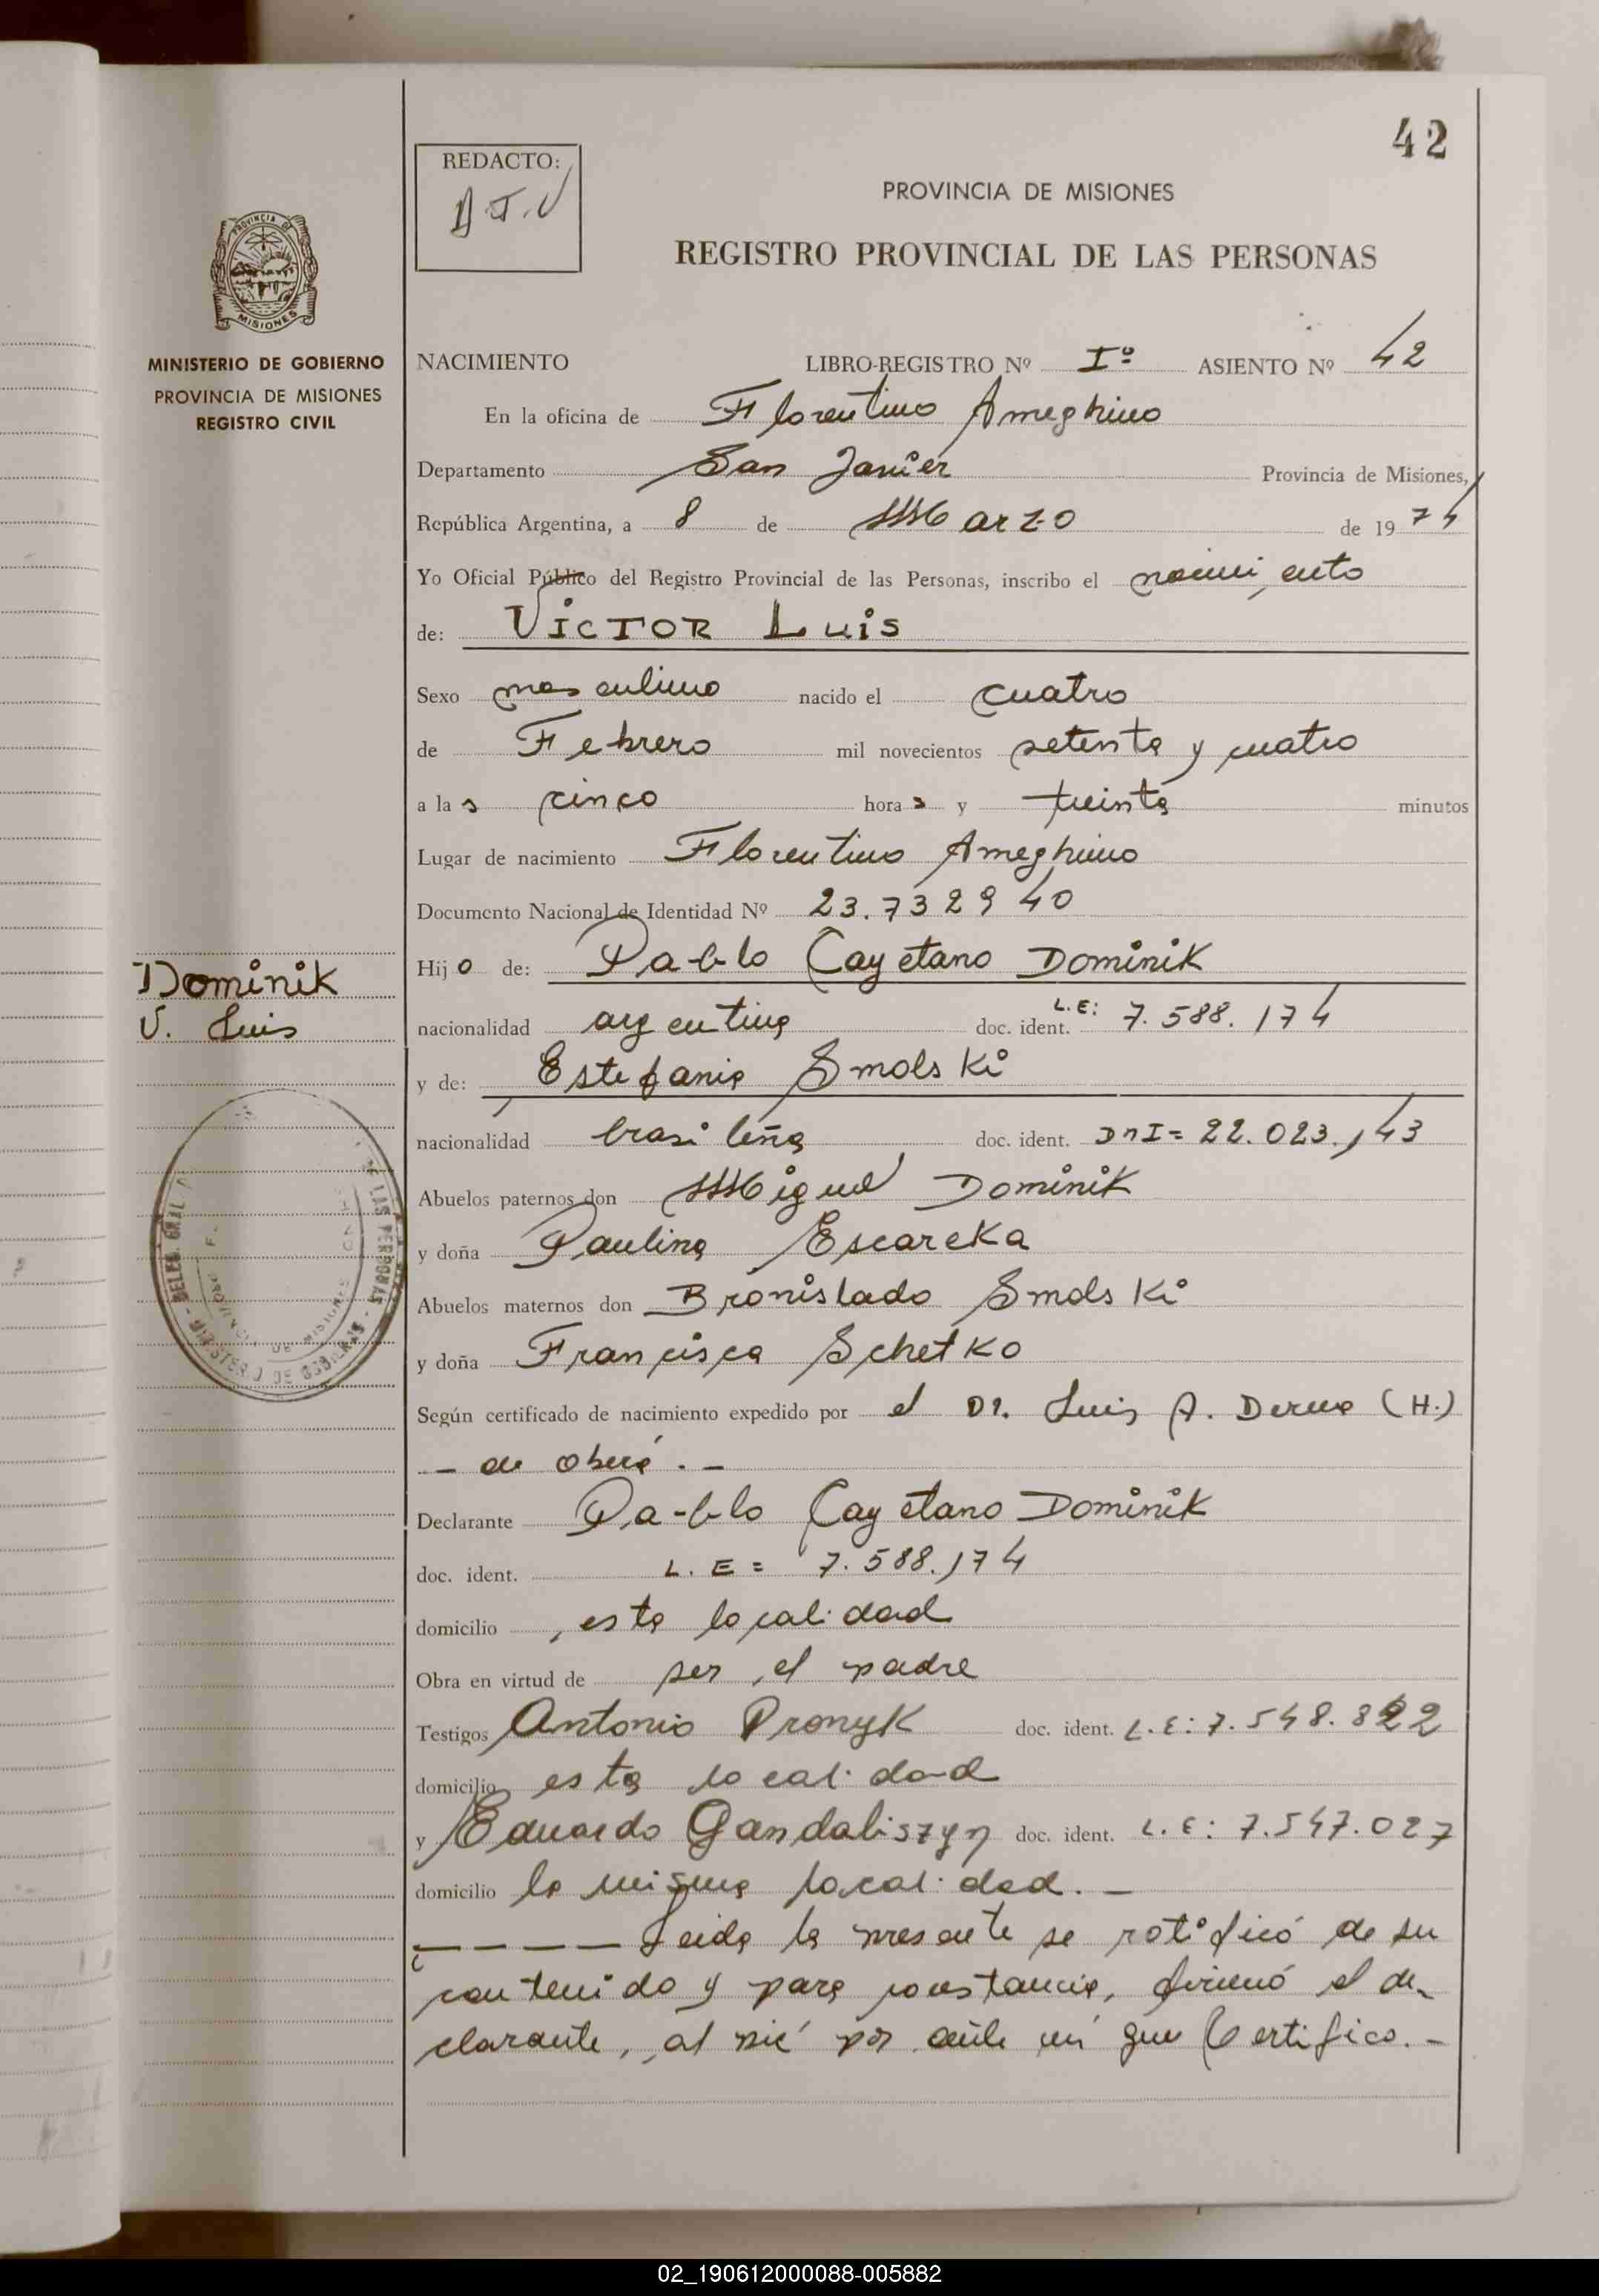 42
REDACTO:
PROVINCIA DE MISIONES
REGISTRO PROVINCIAL DE LAS PERSONAS
PROVINCIA DE
MISIONES
MINISTERIO DE GOBIERNO
PROVINCIA DE MISIONES
REGISTRO CIVIL
NACIMIENTO LIBRO-REGISTRO Nº Iº ASIENTO Nº 42
En la oficina de Florentino Ameghino
Departamento San Javier Provincia de Misiones,
República Argentina, a 8 de Marzo de 1974
Yo Oficial Público del Registro Provincial de las Personas, inscribo el nacimiento
de: VICTOR Luis
Sexo masculino nacido el cuatro
de Febrero mil novecientos setenta y cuatro
a las cinco horas y treinta minutos
Lugar de nacimiento Florentino Ameghino
Documento Nacional de Identidad Nº 23.732940
Hijo de: Pablo Cayetano Dominik
Dominik
V. Luis
nacionalidad argentina doc. ident. L.E: 7.588.174
y de: Estefania Smolski
nacionalidad brasileña doc. ident. DNI= 22.023.143
Abuelos paternos don Miguel Dominik
y doña Paulina Escareka
Abuelos maternos don Bronislado Smolski
y doña Francisca Schetko
Según certificado de nacimiento expedido por el Dr. Luis A. (H.)
- de Oberá. -
Declarante Pablo Cayetano Dominik
doc. ident. L. E = 7.588.174
domicilio esta localidad
Obra en virtud de ser el padre
Testigos Antonio Pronyk doc. ident. L.E: 7.548.822
domicilio esta localidad
y Eduardo Gandaliszyn doc. ident. L.E: 7.547.027
domicilio la misma localidad. -
- - - - - Leida la presente se ratificó de su
contenido y para constancia, firmó el de-
clarante, al pié por ante mí que Certifico. -
DE LAS PERSONAS
PROVINCIA DE MISIONES
MINISTERIO DE GOBIERNO
02_190612000088-005882